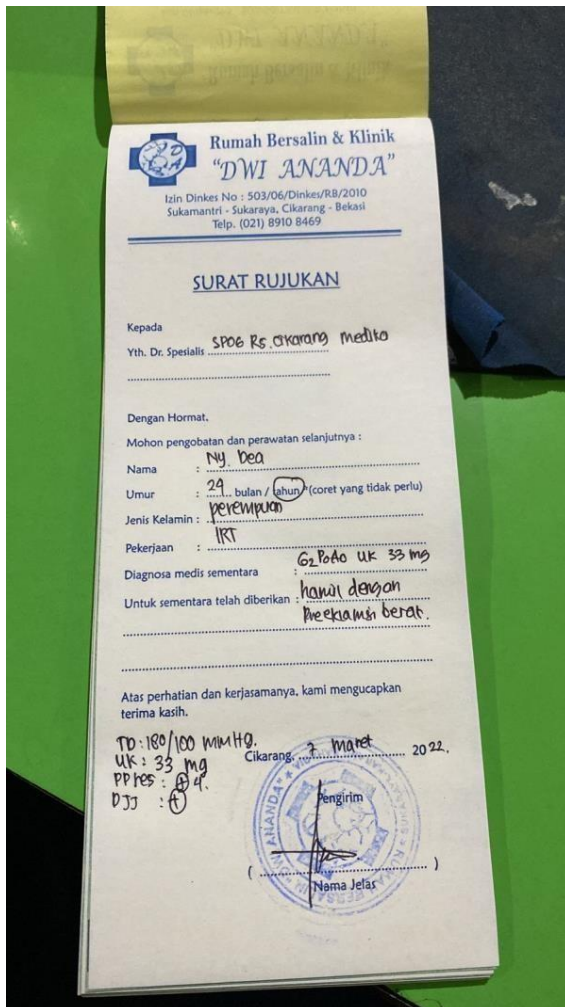 Rumah Bersalin & Klinik
"DWI ANANDA"
Izin Dinkes No : 503/06/Dinkes/RB/2010
Sukamantri - Sukaraya, Cikarang - Bekasi
Telp. (021) 8910 8469
SURAT RUJUKAN
Kepada
Yth. Dr. Spesialis SPOG RS. Cikarang medika
Dengan Hormat,
Mohon pengobatan dan perawatan selanjutnya :
Nama : Ny. bea
Umur : 29 bulan / tahun*(coret yang tidak perlu)
Jenis Kelamin : perempuan
Pekerjaan : IRT
Diagnosa medis sementara : G2P0A0 UK 33 mg
Untuk sementara telah diberikan : hamil dengan
Preeklamsi berat.
Atas perhatian dan kerjasamanya, kami mengucapkan
terima kasih.
TD : 180/100 mmHg.
UK : 33 mg
PPres : + 4.
DJJ : +
Cikarang, 7 maret 2022.
Pengirim
( )
Nama Jelas